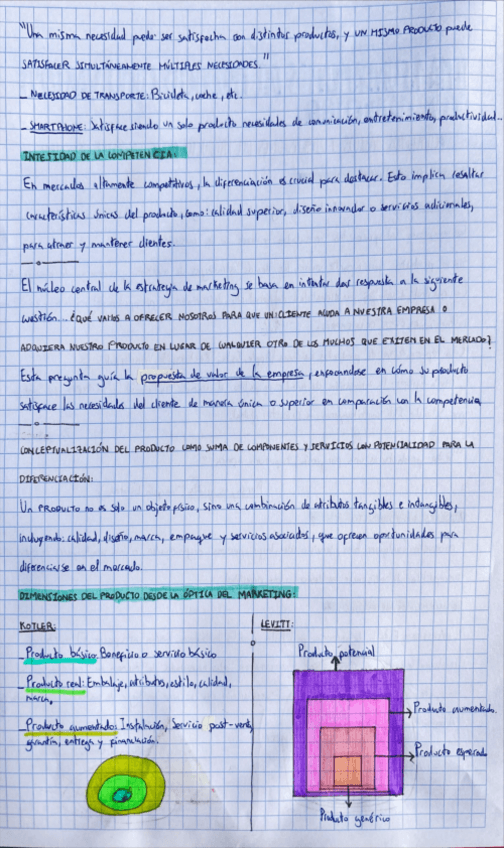 "Una misma necesidad puede ser satisfecha con distintos productos, y UN MISMO PRODUCTO puede
SATISFACER SIMULTÁNEAMENTE MÚLTIPLES NECESIDADES."
- NECESIDAD DE TRANSPORTE: Bicicleta, coche, etc.
- SMARTPHONE: Satisface siendo un solo producto necesidades de comunicación, entretenimiento, productividad...
INTESIDAD DE LA COMPETENCIA:
En mercados altamente competitivos, la diferenciación es crucial para destacar. Esto implica resaltar
características únicas del producto, como: calidad superior, diseño innovador o servicios adicionales,
para atraer y mantener clientes.
El núcleo central de la estrategia de marketing se basa en intentar dar respuesta a la siguiente
cuestión... ¿QUÉ VAMOS A OFRECER NOSOTROS PARA QUE UN CLIENTE ACUDA A NUESTRA EMPRESA O
ADQUIERA NUESTRO PRODUCTO EN LUGAR DE CUALQUIER OTRO DE LOS MUCHOS QUE EXISTEN EN EL MERCADO?
Esta pregunta guía la propuesta de valor de la empresa, enfocandose en cómo su producto
satisface las necesidades del cliente de manera única o superior en comparación con la competencia.
CONCEPTUALIZACIÓN DEL PRODUCTO COMO SUMA DE COMPONENTES Y SERVICIOS CON POTENCIALIDAD PARA LA
DIFERENCIACIÓN:
Un PRODUCTO no es solo un objeto físico, sino una combinación de atributos tangibles e intangibles,
incluyendo: calidad, diseño, marca, empaque y servicios asociados, que ofrecen oportunidades para
diferenciarse en el mercado.
DIMENSIONES DEL PRODUCTO DESDE LA ÓPTICA DEL MARKETING:
KOTLER:
- Producto básico: Beneficio o servicio básico
- Producto real: Embalaje, atributos, estilo, calidad,
marca,
- Producto aumentado: Instalación, Servicio post-venta,
garantía, entrega y financiación.
LEVITT:
Producto potencial
Producto aumentado.
Producto esperado
Producto genérico